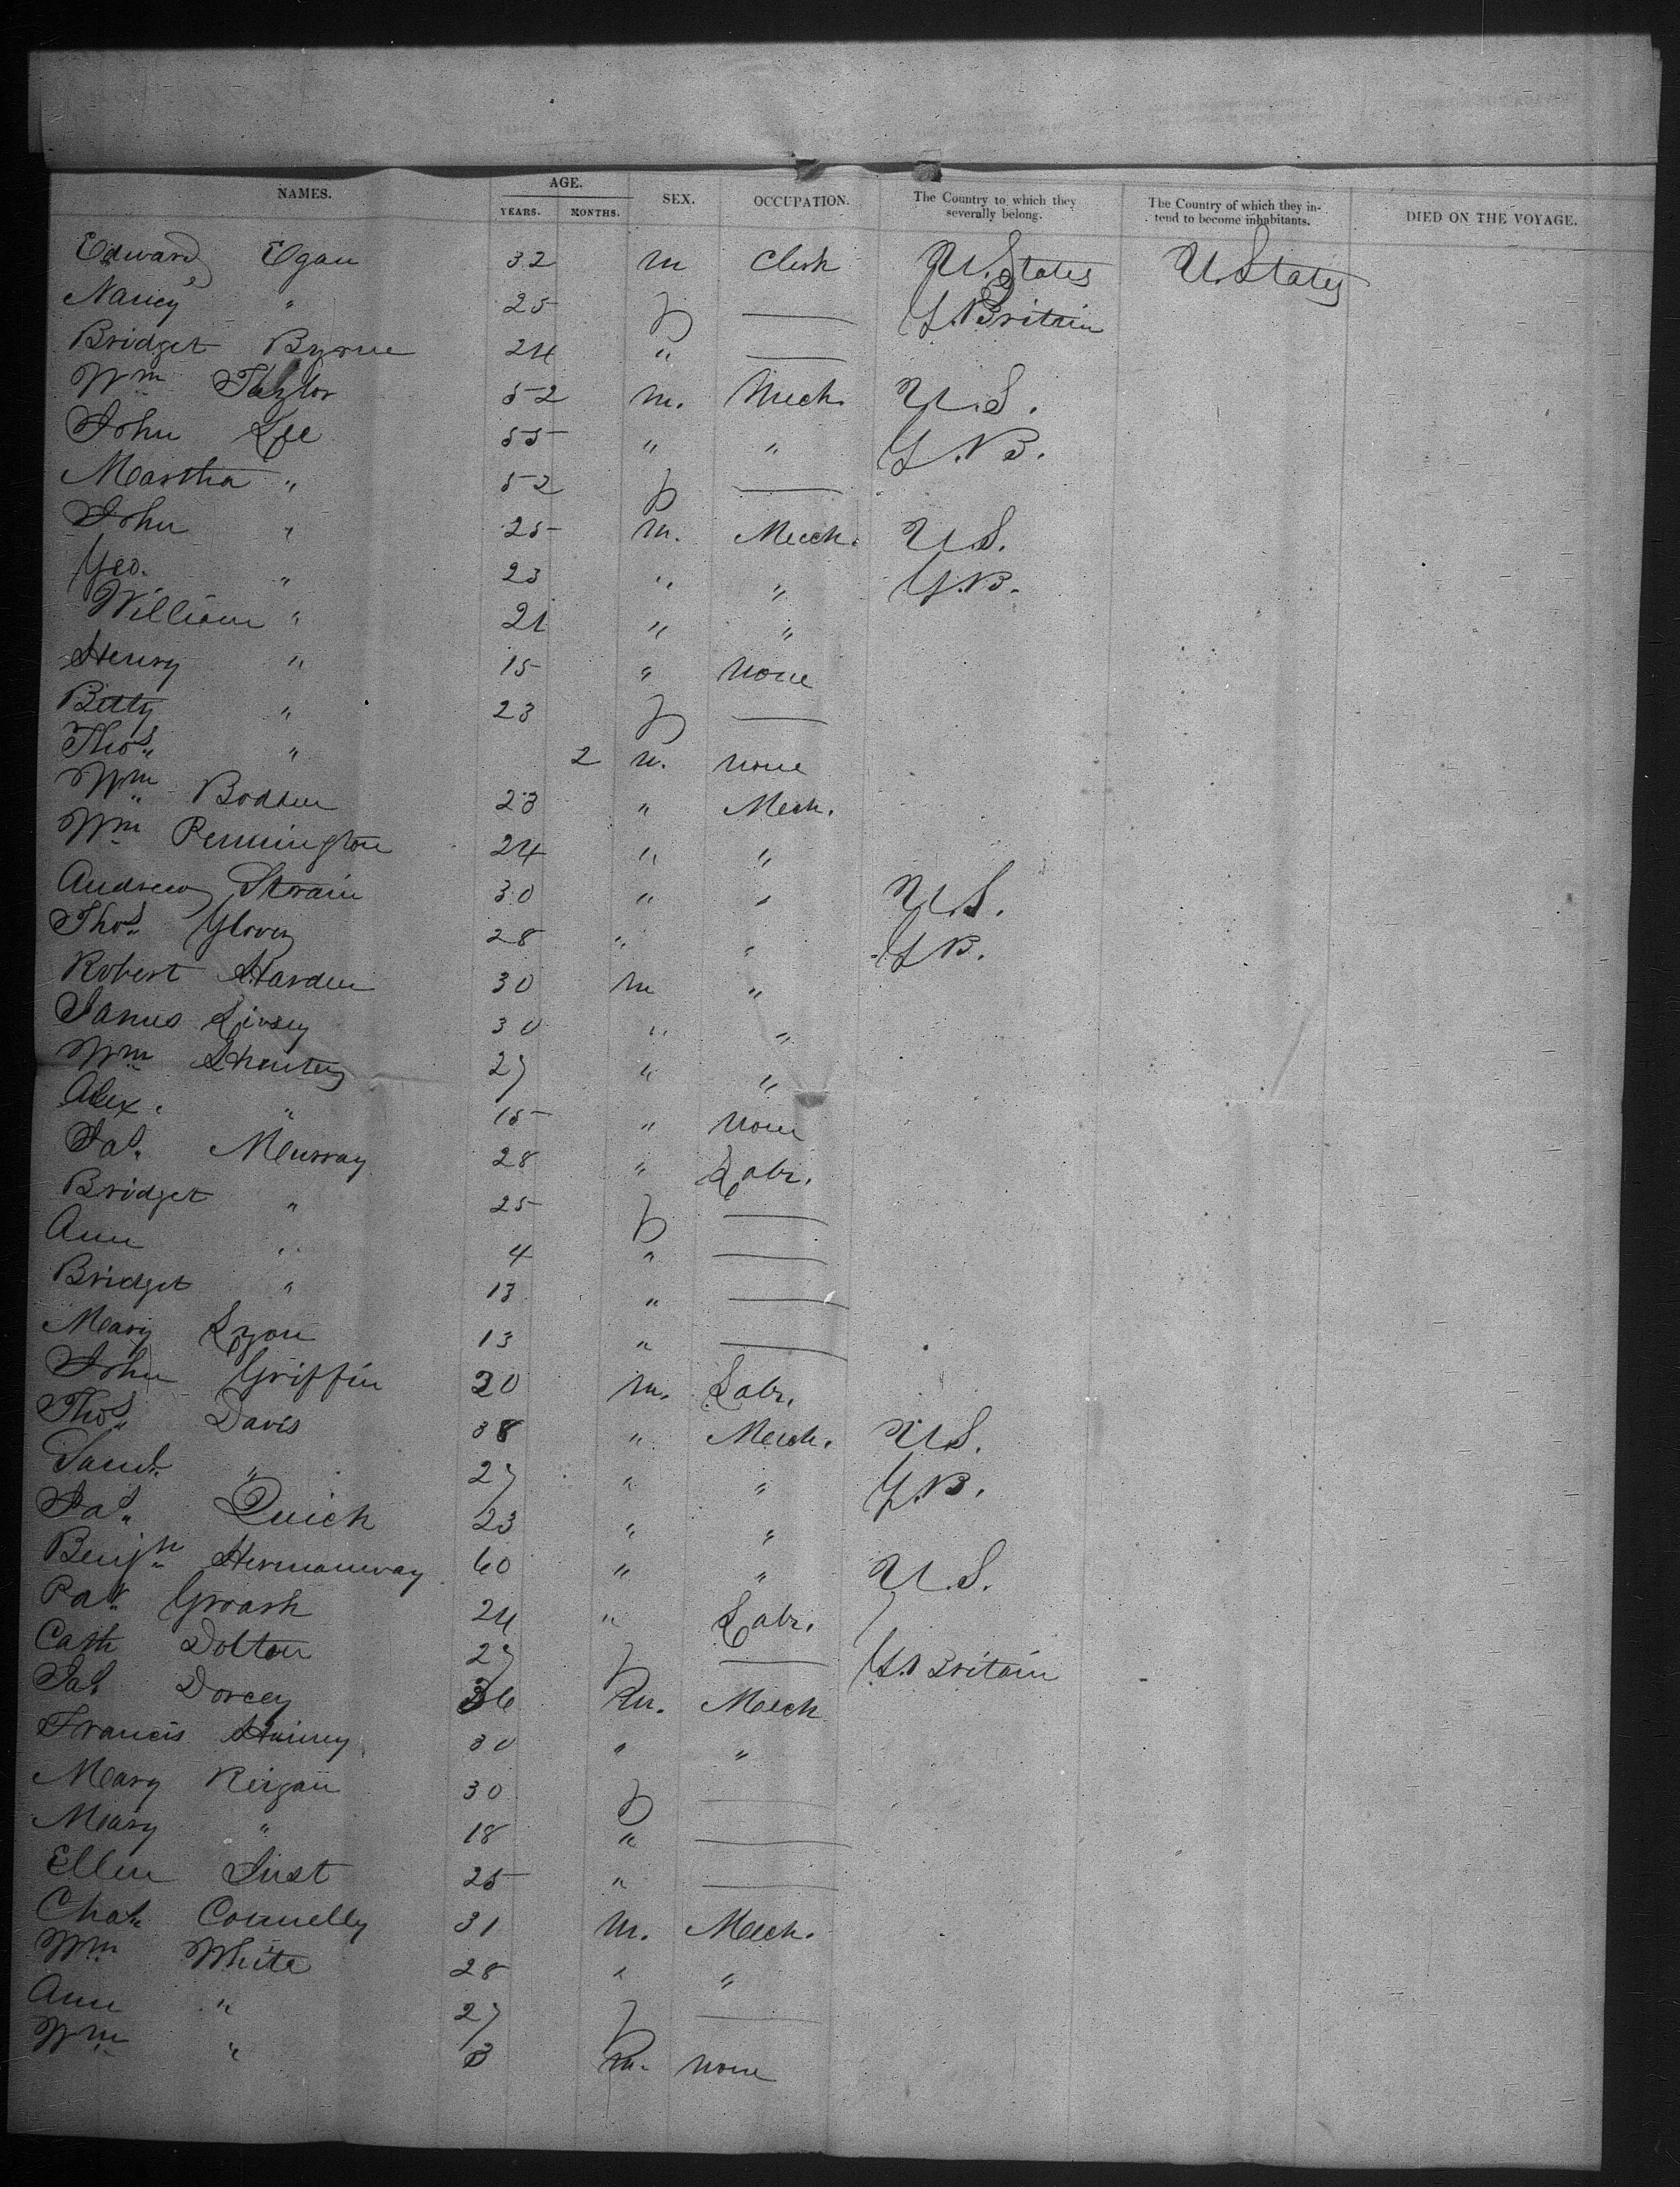 NAMES. AGE. SEX. OCCUPATION. The Country to which they severally belong. The Country of which they intend to become inhabitants. DIED ON THE VOYAGE.
YEARS. MONTHS.
Edward Egan 32 m Clerk U. States U. States
Nancy " 25 f — G. Britain
Bridget Byrne 24 " —
Wm Taylor 52 m. Mech. U.S.
John Lee 55 " " G.B.
Martha " 52 f —
John " 25 m. Mech. U.S.
Geo. " 23 " " G.B.
William " 21 " "
Henry " 15 " None
Betty " 23 f —
Thos " 2 m. None
Wm Bodden 23 " Mech.
Wm Pennington 24 " "
Andrew Strain 30 " " U.S.
Thos Glover 28 " " G.B.
Robert Harden 30 m "
James Livsey 30 " "
Wm 27 " "
Alex. " 15 " None
Jas. Murray 28 " Labr.
Bridget " 25 f —
Ann " 4 " —
Bridget " 13 " —
Mary Lyon 13 " —
John Griffin 20 m. Labr.
Thos Davis 38 " Mech. U.S.
Saml " 27 " " G.B.
Jas. Quick 23 " "
Benjn Hermanway 60 " " U.S.
Pat. Groark 24 " Labr. "
Cath Dolton 27 f — G. Britain
Jas Dorcey 36 m. Mech
Francis 30 " "
Mary Reigan 30 f —
Mary " 18 " —
Ellen Just 25 " —
Chas Connelly 31 m. Mech.
Wm White 28 " "
Ann " 27 f —
Wm " 3 m. None